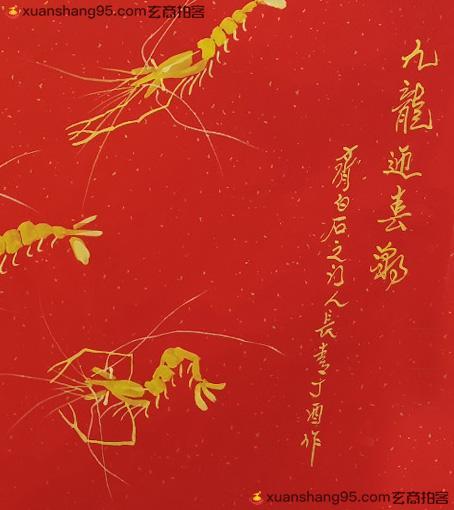 xuanshang95.com玄商拍客
九龍迎春
齊白石之门人長丁酉作
xuanshang95.com玄商拍客